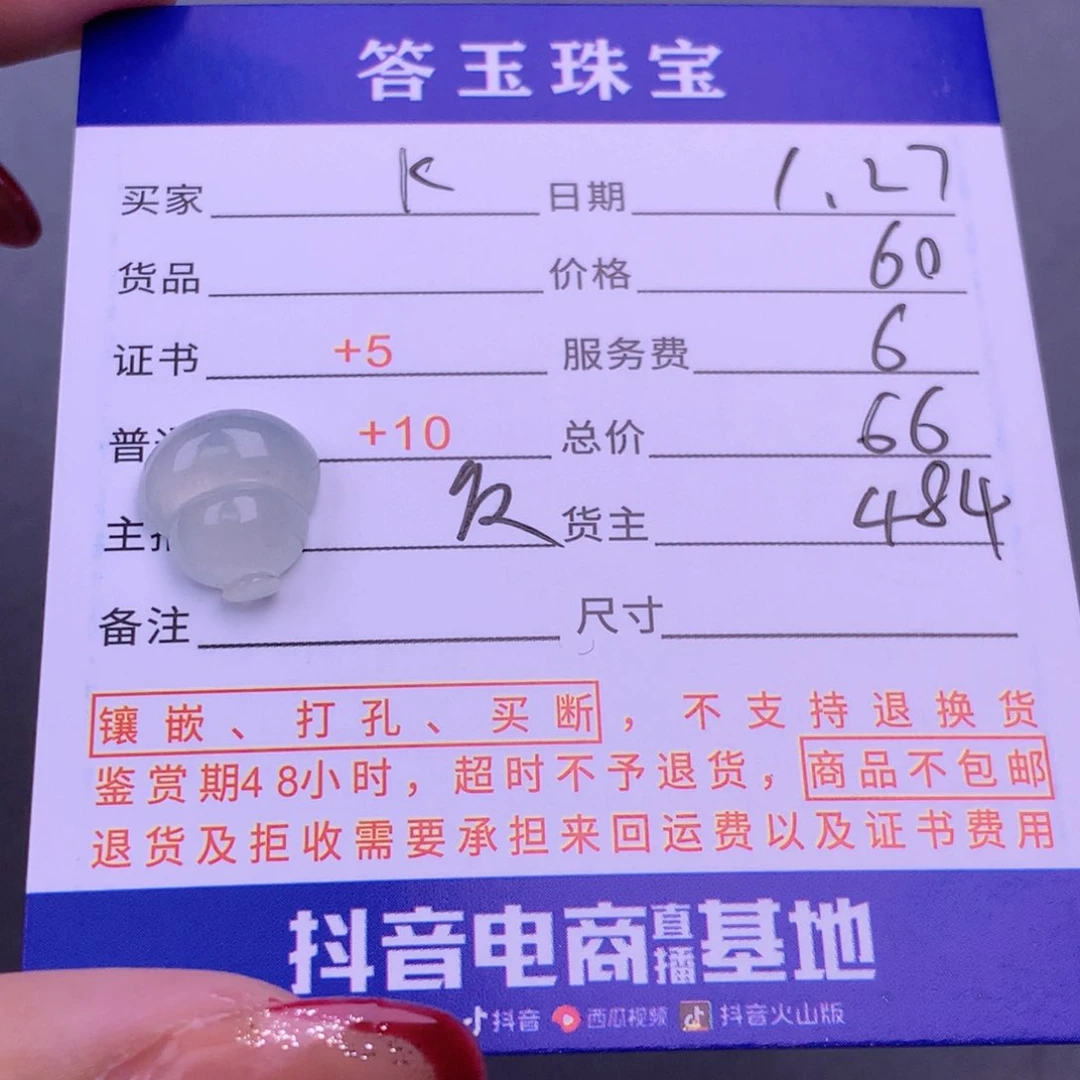 答玉珠宝
买家 K 日期 1.27
货品 价格 60
证书 +5 服务费 6
普 +10 总价 66
主 货主 484
备注 尺寸
镶嵌、打孔、买断，不支持退换货
鉴赏期48小时，超时不予退货，商品不包邮
退货及拒收需要承担来回运费以及证书费用
抖音电商直播基地
抖音 西瓜视频 抖音火山版